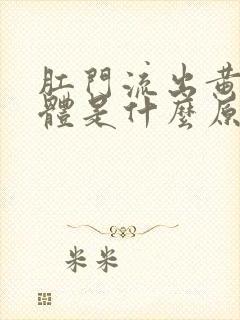 肛門流出黃
體是什麼原
米米